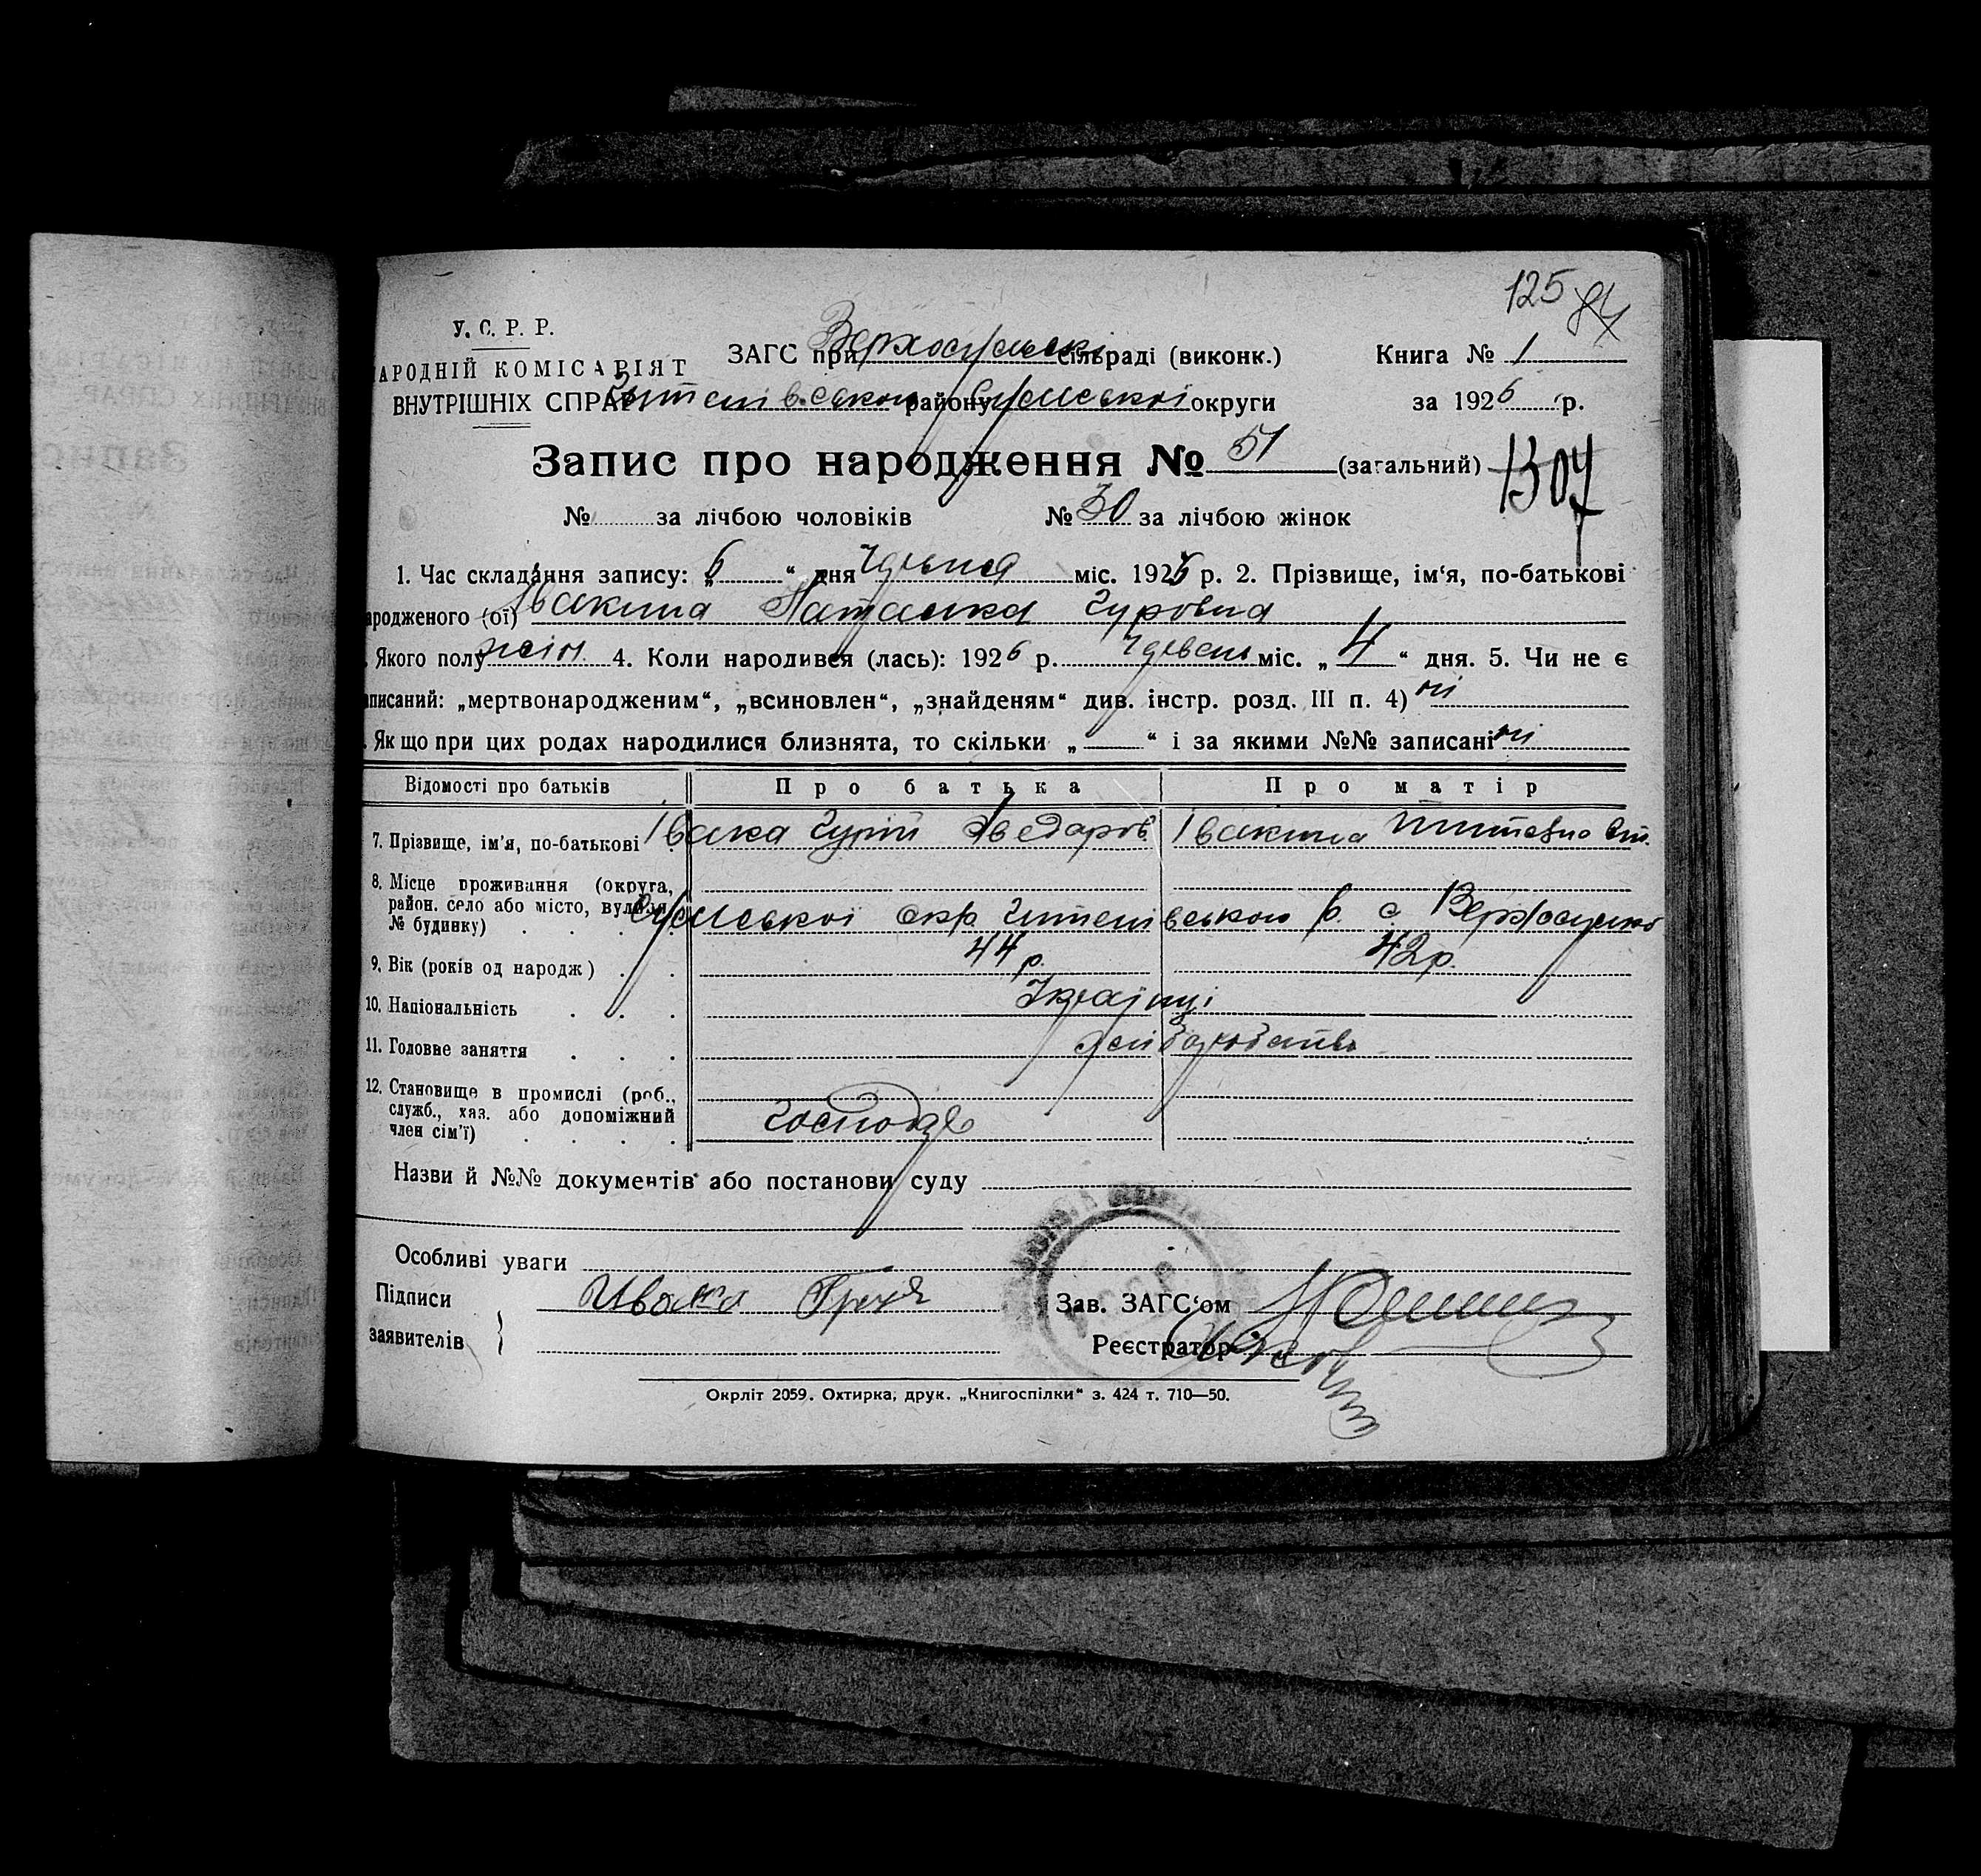 125 84
У. С. Р. Р.
АРОДНІЙ КОМІСАРІЯТ
ВНУТРІШНІХ СПРАВ
ЗАГС при Верхосульські сільраді (виконк.)
Книга № 1
району Сумської округи
за 1926 р.
Запис про народження № 51 (загальний) 1307
№ за лічбою чоловіків № 30 за лічбою жінок
1. Час складання запису: „ 6 “ дня міс. 1926 р. 2. Прізвище, ім‘я, по-батькові
ародженого (ої) Івакина Наталка Гуровна
Якого полу жін. 4. Коли народився (лась): 1926 р. міс. „ 4 “ дня. 5. Чи не є
аписаний: „мертвонародженим“, „всиновлен“, „знайденям“ див. інстр. розд. III п. 4) ні
Якщо при цих родах народилися близнята, то скільки „ “ і за якими №№ записані ні
Відомості про батьків Про батька Про матір
7. Прізвище, ім'я, по-батькові Івака Гурій Івакина
8. Місце проживання (округа, район. село або місто, вулиця, № будинку) Сумської окр. р. с
9. Вік (років од народж) 44 р. 42 р.
10. Національність Українці
11. Головве заняття
12. Становище в промислі (роб., служб., хаз. або допоміжний член сім'ї)
Назви й №№ документів або постанови суду
Особливі уваги
Підписи заявителів Ивака
Зав. ЗАГС‘ом
Реєстратор
Окрліт 2059. Охтирка, друк. „Книгоспілки“ з. 424 т. 710—50.